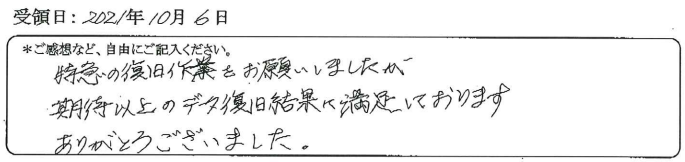 受領日：2021年10月6日
＊ご感想など、自由にご記入ください。
特急の復旧作業をお願いしましたが
期待以上のデータ復旧結果に満足しております
ありがとうございました。